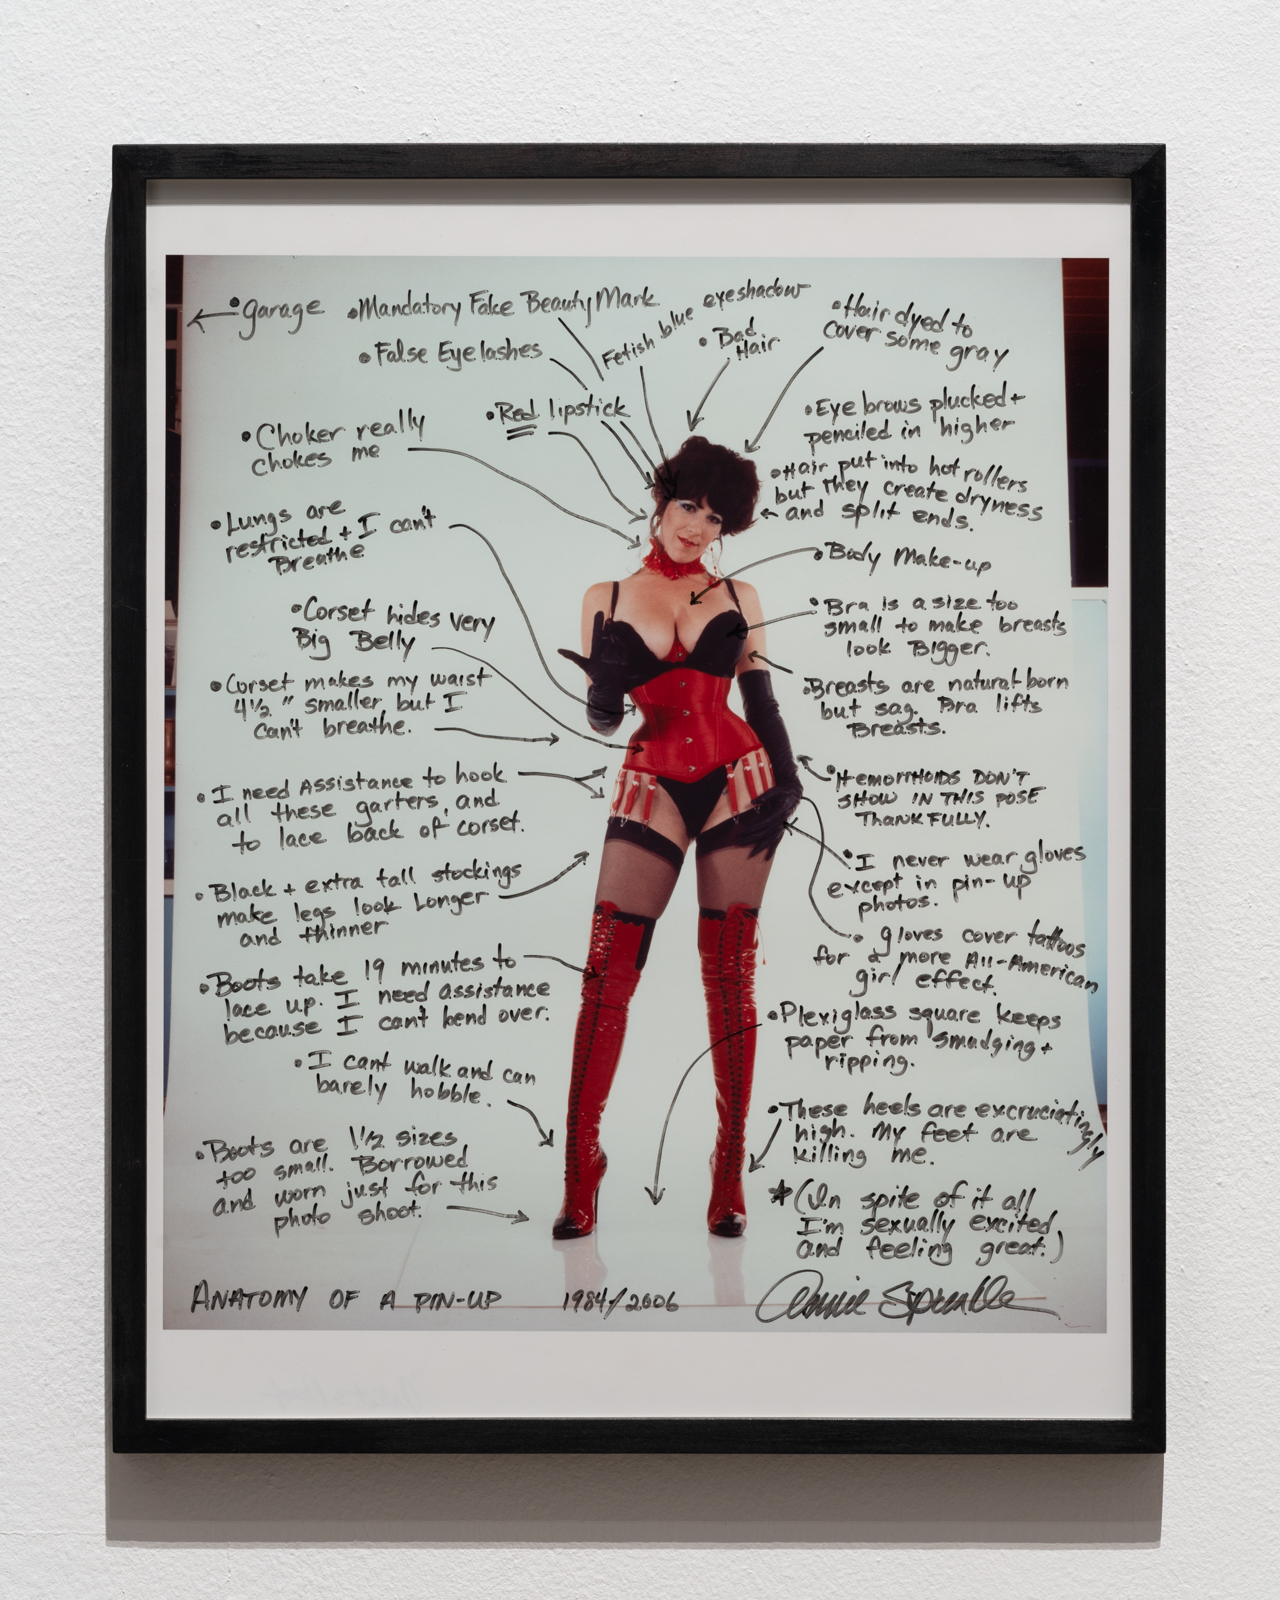 • garage
• Mandatory Fake Beauty Mark
• False Eyelashes
• Red lipstick
Fetish blue eyeshadow
• Bad
Hair
• Hair dyed to
cover some gray
• Choker really
chokes me
• Lungs are
restricted + I can't
Breathe
• Corset hides very
Big Belly
• Corset makes my waist
4½" smaller but I
can't breathe.
• I need Assistance to hook
all these garters, and
to lace back of corset.
• Black + extra tall stockings
make legs look Longer
and thinner
• Boots take 19 minutes to
lace up. I need assistance
because I can't bend over.
• I cant walk and can
barely hobble.
• Boots are 1½ sizes
too small. Borrowed
and worn just for this
photo shoot.
• Eye brows plucked +
penciled in higher
• Hair put into hot rollers
but they create dryness
and split ends.
• Body Make-up
• Bra is a size too
small to make breasts
look Bigger.
• Breasts are natural born
but sag. Bra lifts
Breasts.
• HEMORRHOIDS DON'T
SHOW IN THIS POSE
THANKFULLY.
• I never wear gloves
except in pin-up
photos.
• gloves cover tattoos
for a more All-American
girl effect.
• Plexiglass square keeps
paper from smudging +
ripping.
• These heels are excruciatingly
high. My feet are
killing me.
* (In spite of it all
I'm sexually excited
and feeling great.)
ANATOMY OF A PIN-UP 1984/2006 Annie Sprinkle